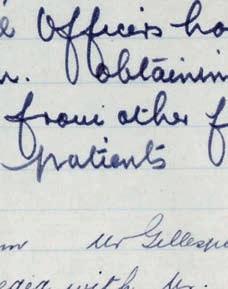 Officers
obtainin
from other f
patients
Mr Gillesp
with Mr.